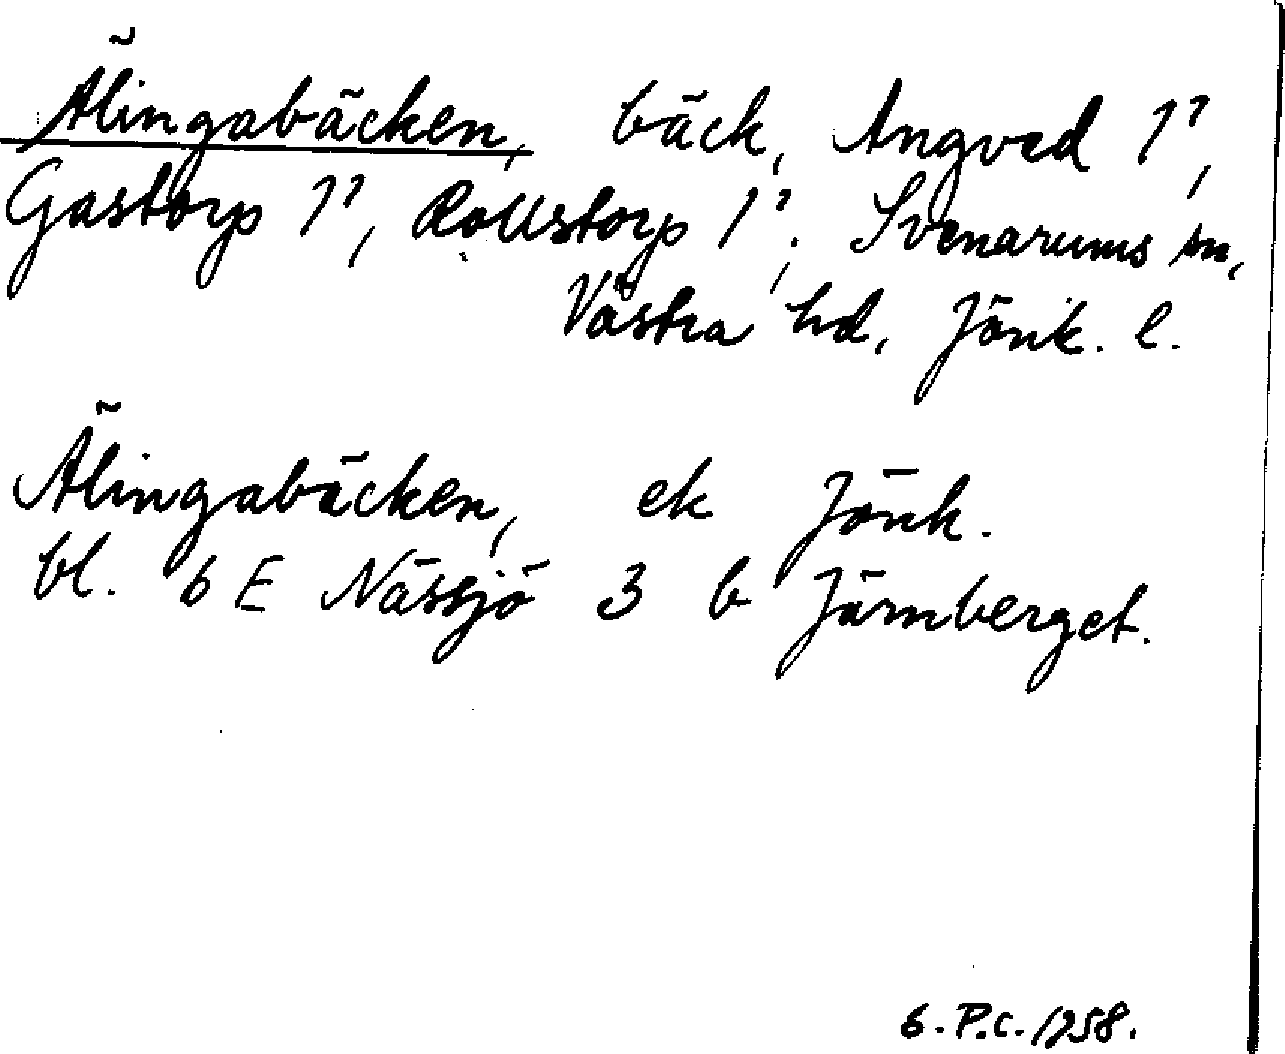 Älingabäcken, bäck, Angved 1?,
Gastorp 1?, Rollstorp 1?, Svenarums sn,
Västra hd, Jönk. l.
Älingabäcken, ek Jönk.
bl. 6 E Nässjö 3 b Järnberget.
G. P.C. 1958.